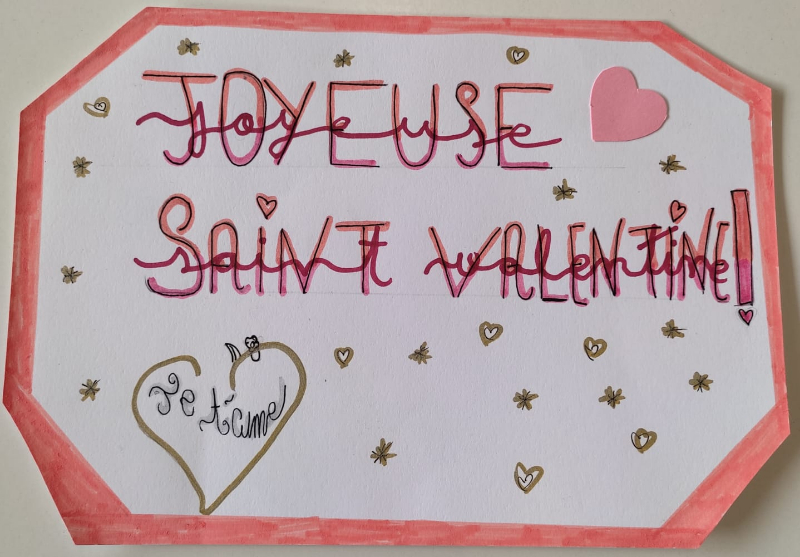 JOYEUSE
joyeuse
SAINT VALENTINE!
saint valentine
Je t'aime